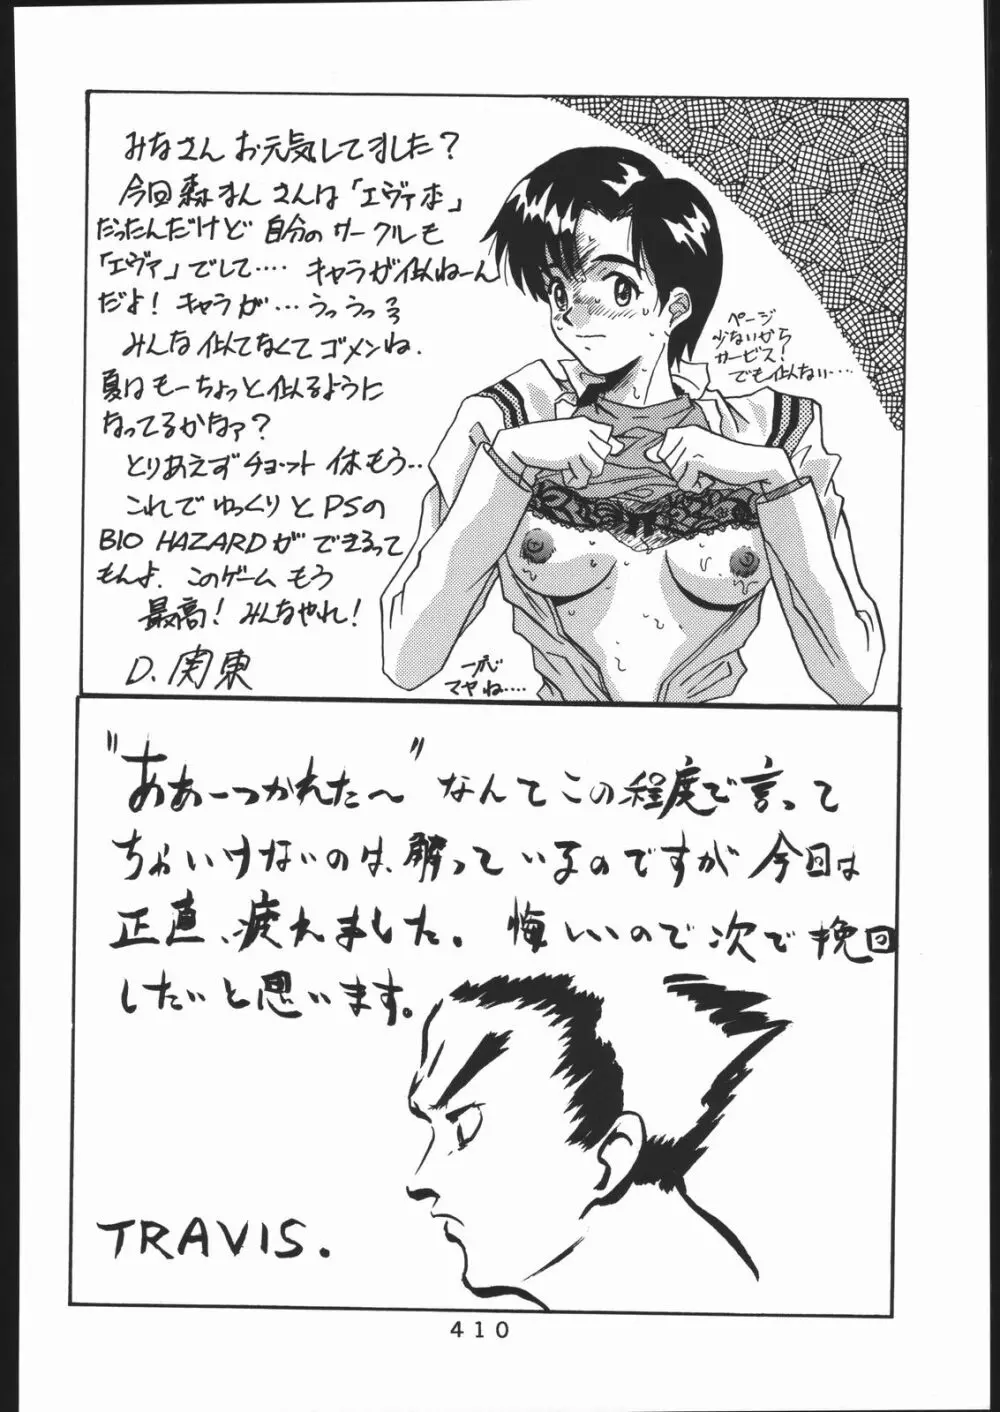 みなさん お元気してました？
今回森まん さんは「エヴァ本」
だったんだけど 自分のサークルも
「エヴァ」でして…. キャラが似ねーん
だよ！ キャラが…うっうっ
みんな似てなくてゴメンね.
夏はもーちょっと似るように
なってるかなァ？
とりあえずチョット休もう..
これでゆっくりとPSの
BIO HAZARDができるって
もんよ. このゲーム もう
最高！ みんなやれ！
D. 関東
ページ
少ないから
サービス！
でも似ない….
一応
マヤね….
"ああーつかれた〜" なんてこの程度で言って
ちゃいけないのは、解っているのですが今回は
正直、疲れました。悔しいので次で挽回
したいと思います。
TRAVIS.
410